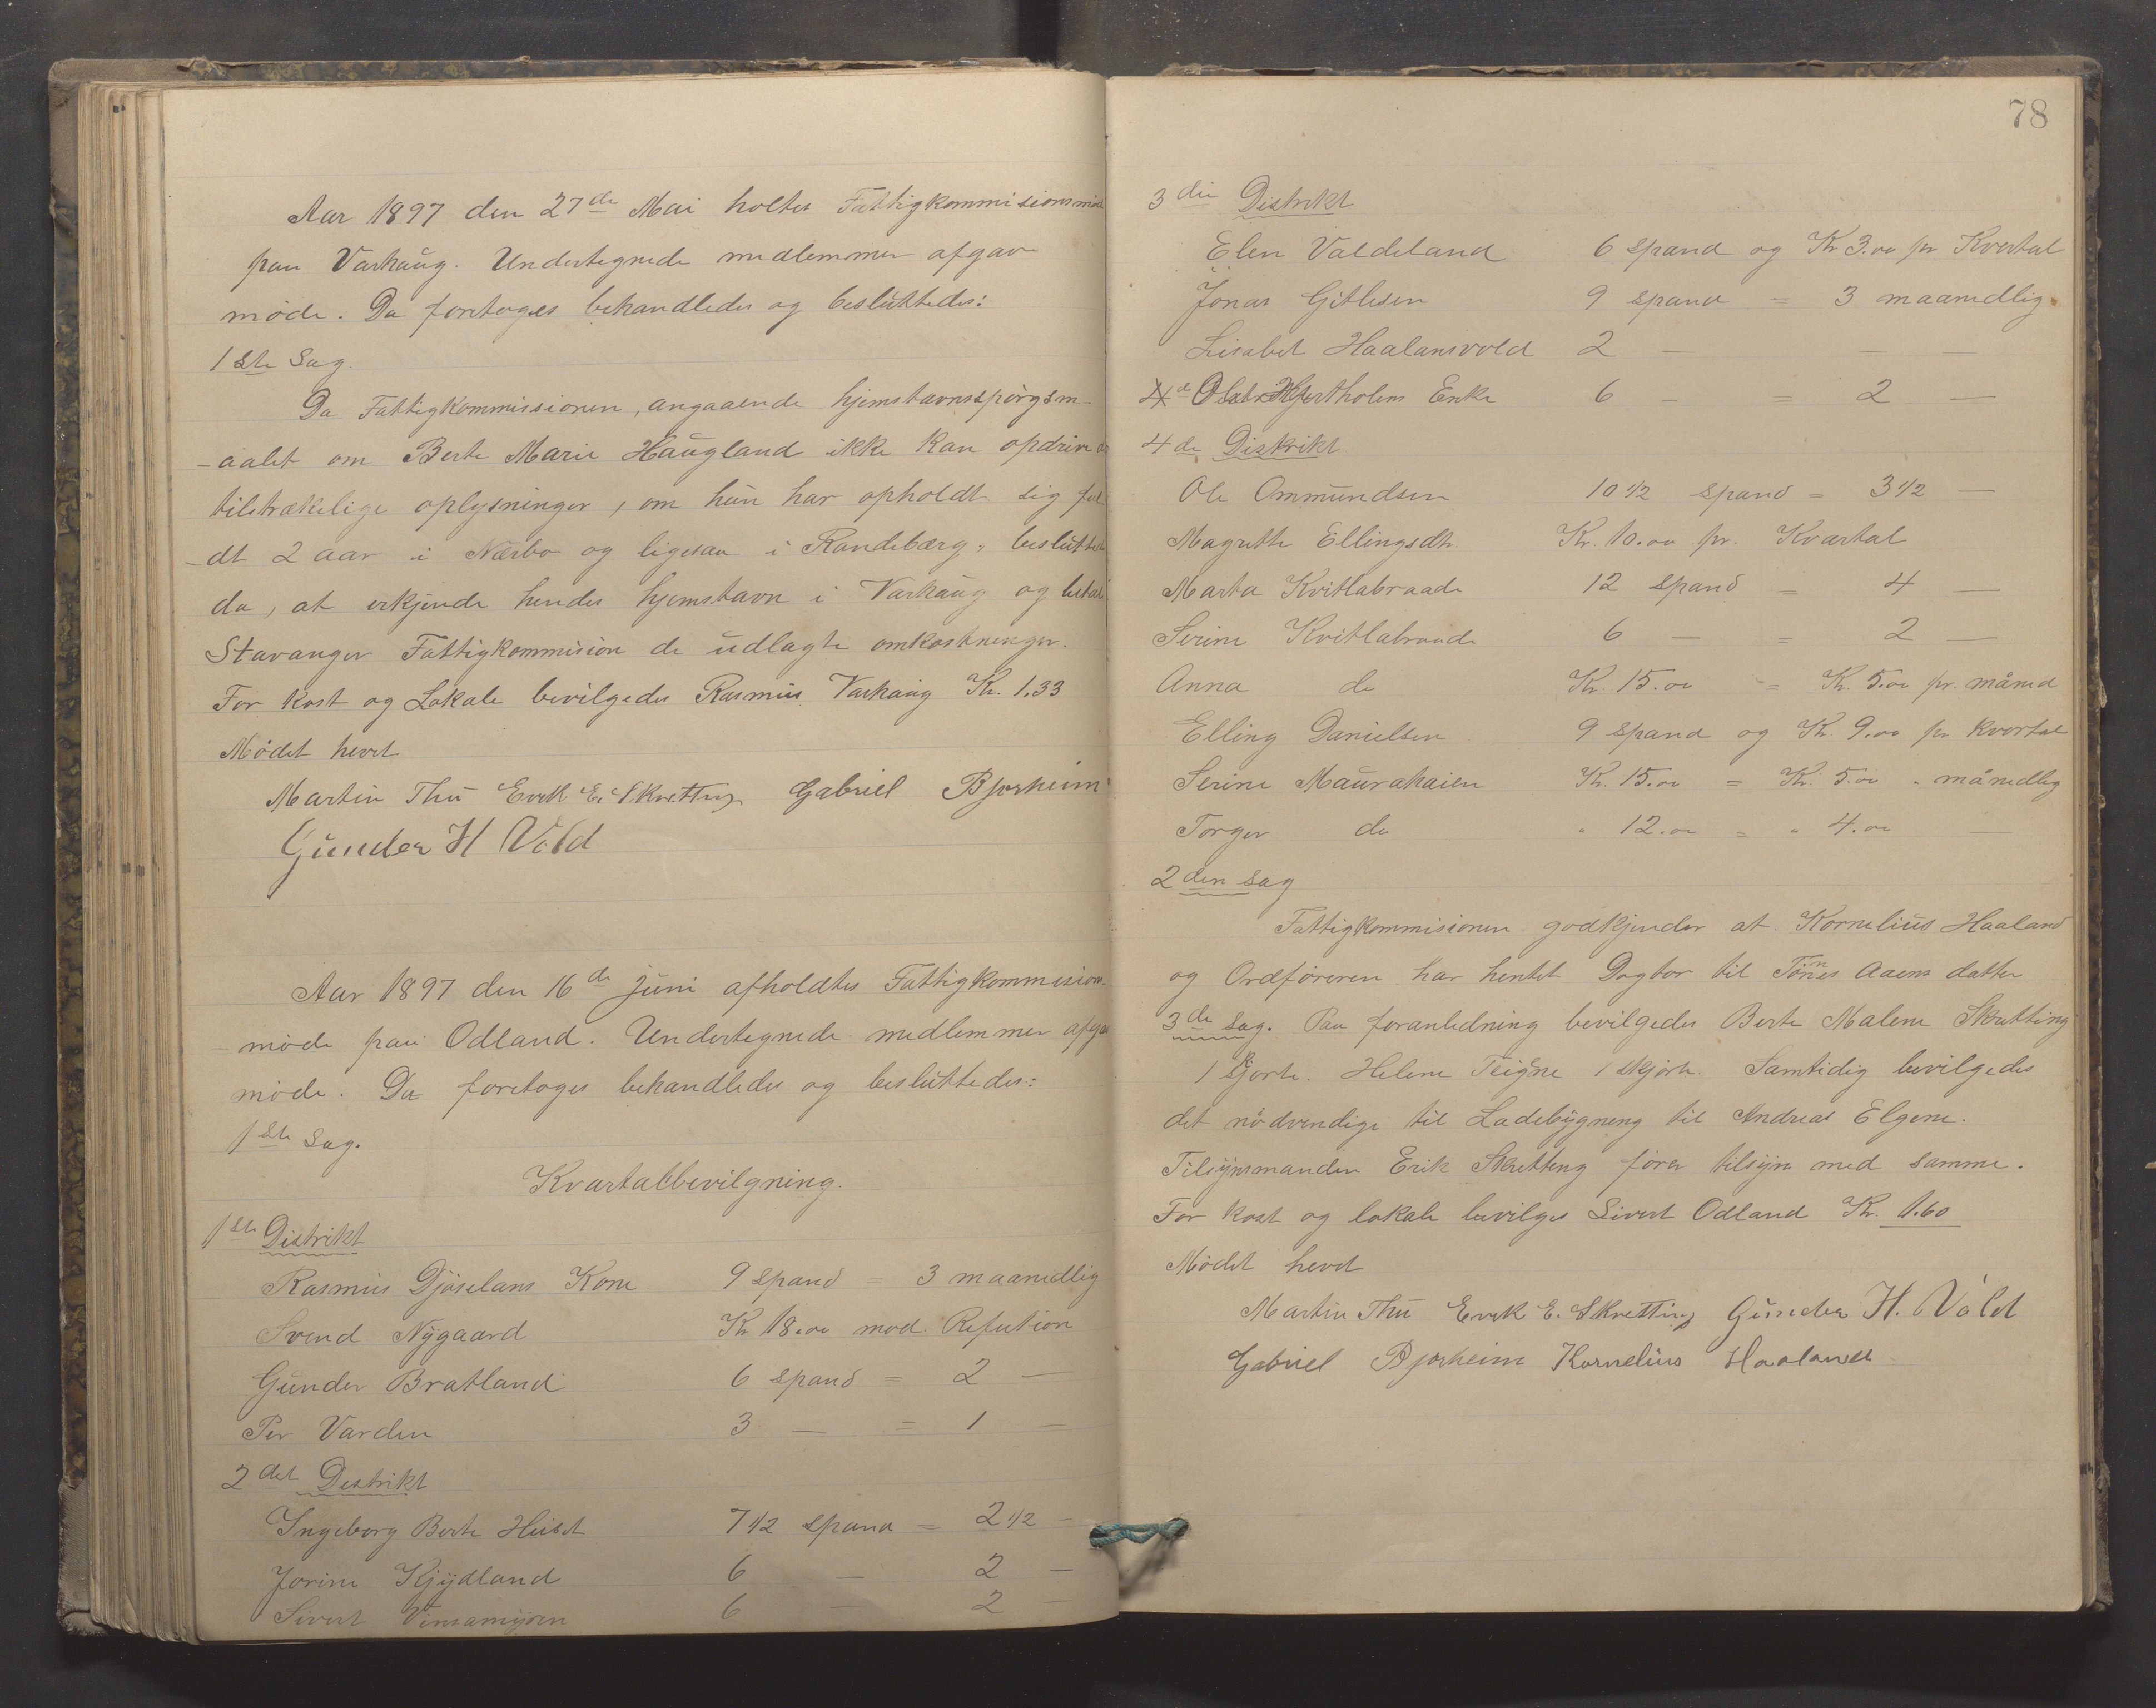 Aar 1897 den 27de Mai holtes Fattigkommisionsmøde
paa Varhaug. Undertegnede medlemmer afgave
møde. Da foretoges behandledes og besluttedes:
1ste Sag.
Da Fattigkommissionen, angaaende hjemstavnsspørgsm-
-aalet om Berte Marie Haugland ikke kan opdrive de
tilstrækelige oplysninger, om hun har opholdt sig ful
-dt 2 aar i Nærbø og ligesaa i Randebærg, besluttede
da, at erkjende hendes hjemstavn i Varhaug og betale
Stavanger Fattigkommision de udlagte omkostninger.
For kost og Lokale bevilgedes Rasmus Varhaug Kr. 1.33
Mødet hevet
Martin Thu Erik E. Skretting Gabriel Bjorheim
Gunder H Vold
Aar 1897 den 16de Juni afholdtes Fattigkommision-
møde paa Odland. Undertegnede medlemmer afgav
møde. Da foretoges behandledes og besluttedes:
1ste Sag.
Kvartalbevilgning.
1ste Distrikt
Rasmus Djøselans Kone 9 spand = 3 maanedlig
Svend Nygaard Kr 18.00 mod Refution
Gunder Bratland 6 spand = 2 —
Per Varden 3 — = 1 —
2det Destrikt
Ingeborg Berte Huset 7 1/2 spand = 2 1/2 —
Jorine Kjydland 6 — 2 —
Sivert 6 — 2 —
78
3die Destrikt
Elen Valdeland 6 spand og Kr 3.00 pr Kvertal
Jonas Gitlesen 9 spand = 3 maanedlig
Lisabet Haalansvold 2 — —
Enke 6 — = 2 —
4de Distrikt
Ole Ommundsen 10 1/2 spand = 3 1/2 —
Magrethe Ellingsdtr. Kr. 10.00 pr. Kvartal
Marta Kvitlabraade 12 spand = 4 —
Serine Kvitlabraade 6 — = 2 —
Anna do Kr. 15.00 = Kr. 5.00 pr. måned
Elling Danielsen 9 spand og Kr. 9.00 pr kvertal
Serine Maurahaien Kr. 15.00 = Kr. 5.00 - månedlig
Torger do " 12.00 = " 4.00 —
2den sag
Fattigkommisionen godkjender at Kornelius Haaland
og Ordføreren har hentet Dogtor til Tønnes Aaens datter
3de Sag. Paa foranledning bevilgedes Berte Malene Skretting
1 skjorte. Helene Teigne 1 skjorte. Samtidig bevilgedes
det nødvendige til Ladebygneng til Andreas Elgene.
Tilsynsmanden Erik Skretteng fører tilsyn med samme.
For kost og lokale bevilges Sivert Odland Kr. 1.60
Mødet hevet
Martin Thu Erik E. Skretting Gunder H. Vold
Gabriel Bjorheim Kornelius Haaland